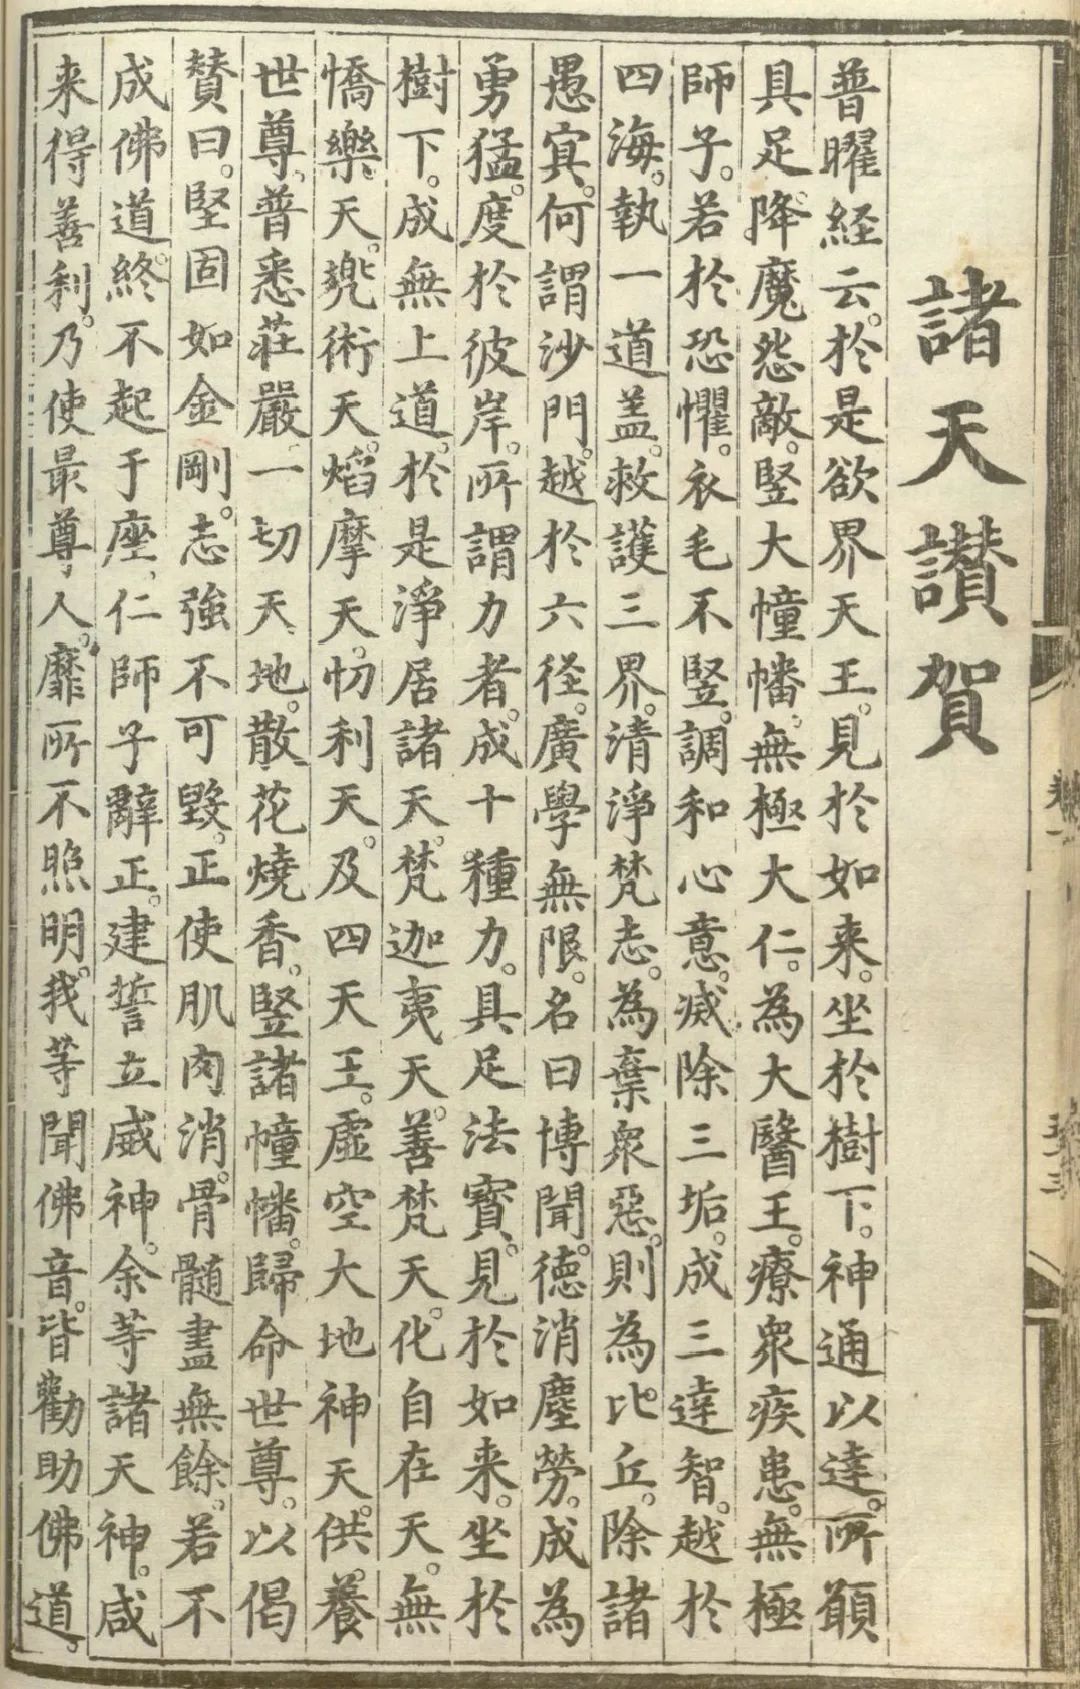 諸天讃賀
普曜経云。於是欲界天王。見於如来。坐於樹下。神通以達。所願
具足。降魔怨敵。竪大幢幡。無極大仁。為大醫王。療衆疾患。無極
師子。若於恐懼。衣毛不竪。調和心意。滅除三垢。成三達智。越於
四海。執一道盖。救護三界。清淨梵志。為棄衆惡。則為比丘。除諸
愚冥。何謂沙門。越於六径。廣學無限。名曰博聞。德消塵勞。成為
勇猛。度於彼岸。所謂力者。成十種力。具足法寳。見於如来。坐於
樹下。成無上道。於是淨居諸天。梵迦夷天。善梵天。化自在天。無
憍樂天。兠術天。焰摩天。忉利天。及四天王。虚空大地神天。供養
世尊。普悉荘嚴。一切天地。散花燒香。竪諸幢幡。歸命世尊。以偈
賛曰。堅固如金剛。志強不可毀。正使肌肉消。骨髄盡無餘。若不
成佛道。終不起于座。仁師子辭正。建誓立威神。余等諸天神。咸
来得善利。乃使最尊人。靡所不照明。我等聞佛音。皆勸助佛道。